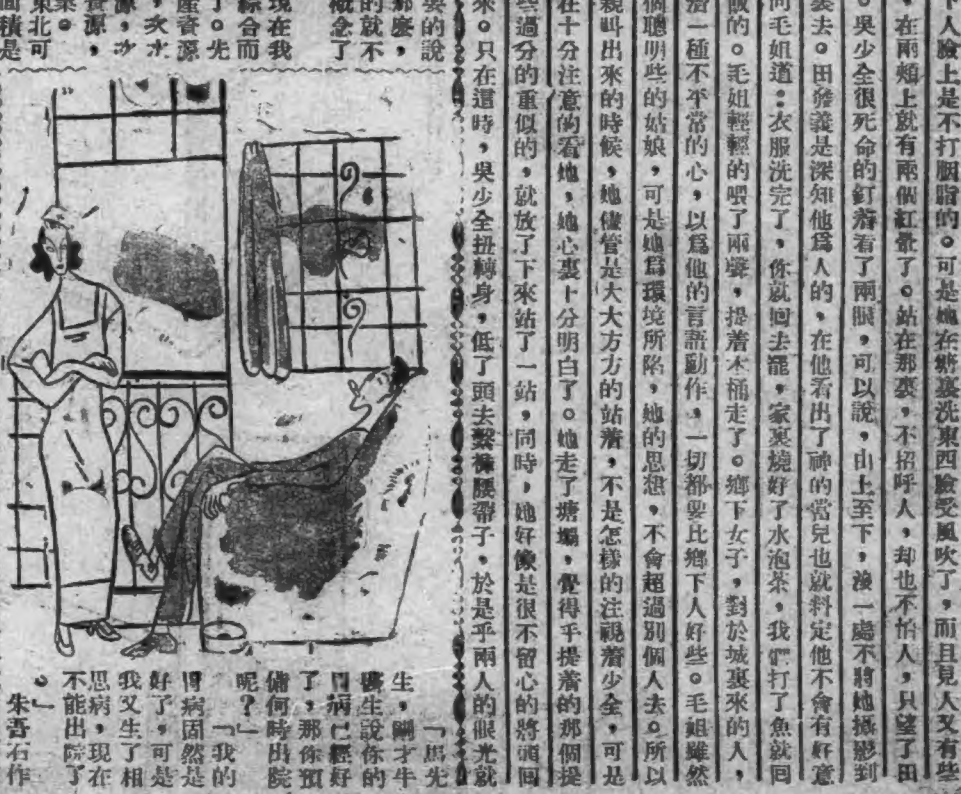 下人臉上是不打胭脂的。可是她在塘裏洗東西臉受風吹了,而且見人又有些
,在兩頰上就有兩個紅暈了。站在那裏,不招呼人,却也不怕人,只望了田
。吳少全很死命的釘着看了兩眼,可以說,由上至下,沒一處不將她攝影到
裏去。田發義是深知他爲人的,在他看出了神的當兒也就料定他不會有好意
向毛姐道:衣服洗完了,你就回去罷,家裏燒好了水泡茶,我們打了魚就回
飯的。毛姐輕輕的喂了兩聲,提着木桶走了。鄉下女子,對於城裏來的人,
着一種不平常的心,以爲他的言語動作,一切都要比鄉下人好些。毛姐雖然
個聰明些的姑娘,可是她爲環境所陷,她的思想,不會超過別個人去。所以
親叫出來的時候,她儘管是大大方方的站着,不是怎樣的注視着少全,可是
在十分注意的看她,她心裏十分明白了。她走了塘塌,覺得手提着的那個提
些過分的重似的,就放了下來站了一站,同時,她好像是很不留心的將頭回
來。只在這時,吳少全扭轉身,低了頭去繫褲腰帶子,於是乎兩人的眼光就
要的說
那麼,
的就不
概念了
現在我
綜合而
了。先
產資源
,次水
源,次
資源,
東北可
面積是
「馬先
生,剛才牛
醫生說你的
胃病已經好
了,那你預
備何時出院
呢?」
「我的
胃病固然是
好了,可是
我又生了相
思病,現在
不能出院了
。」
朱吾石作